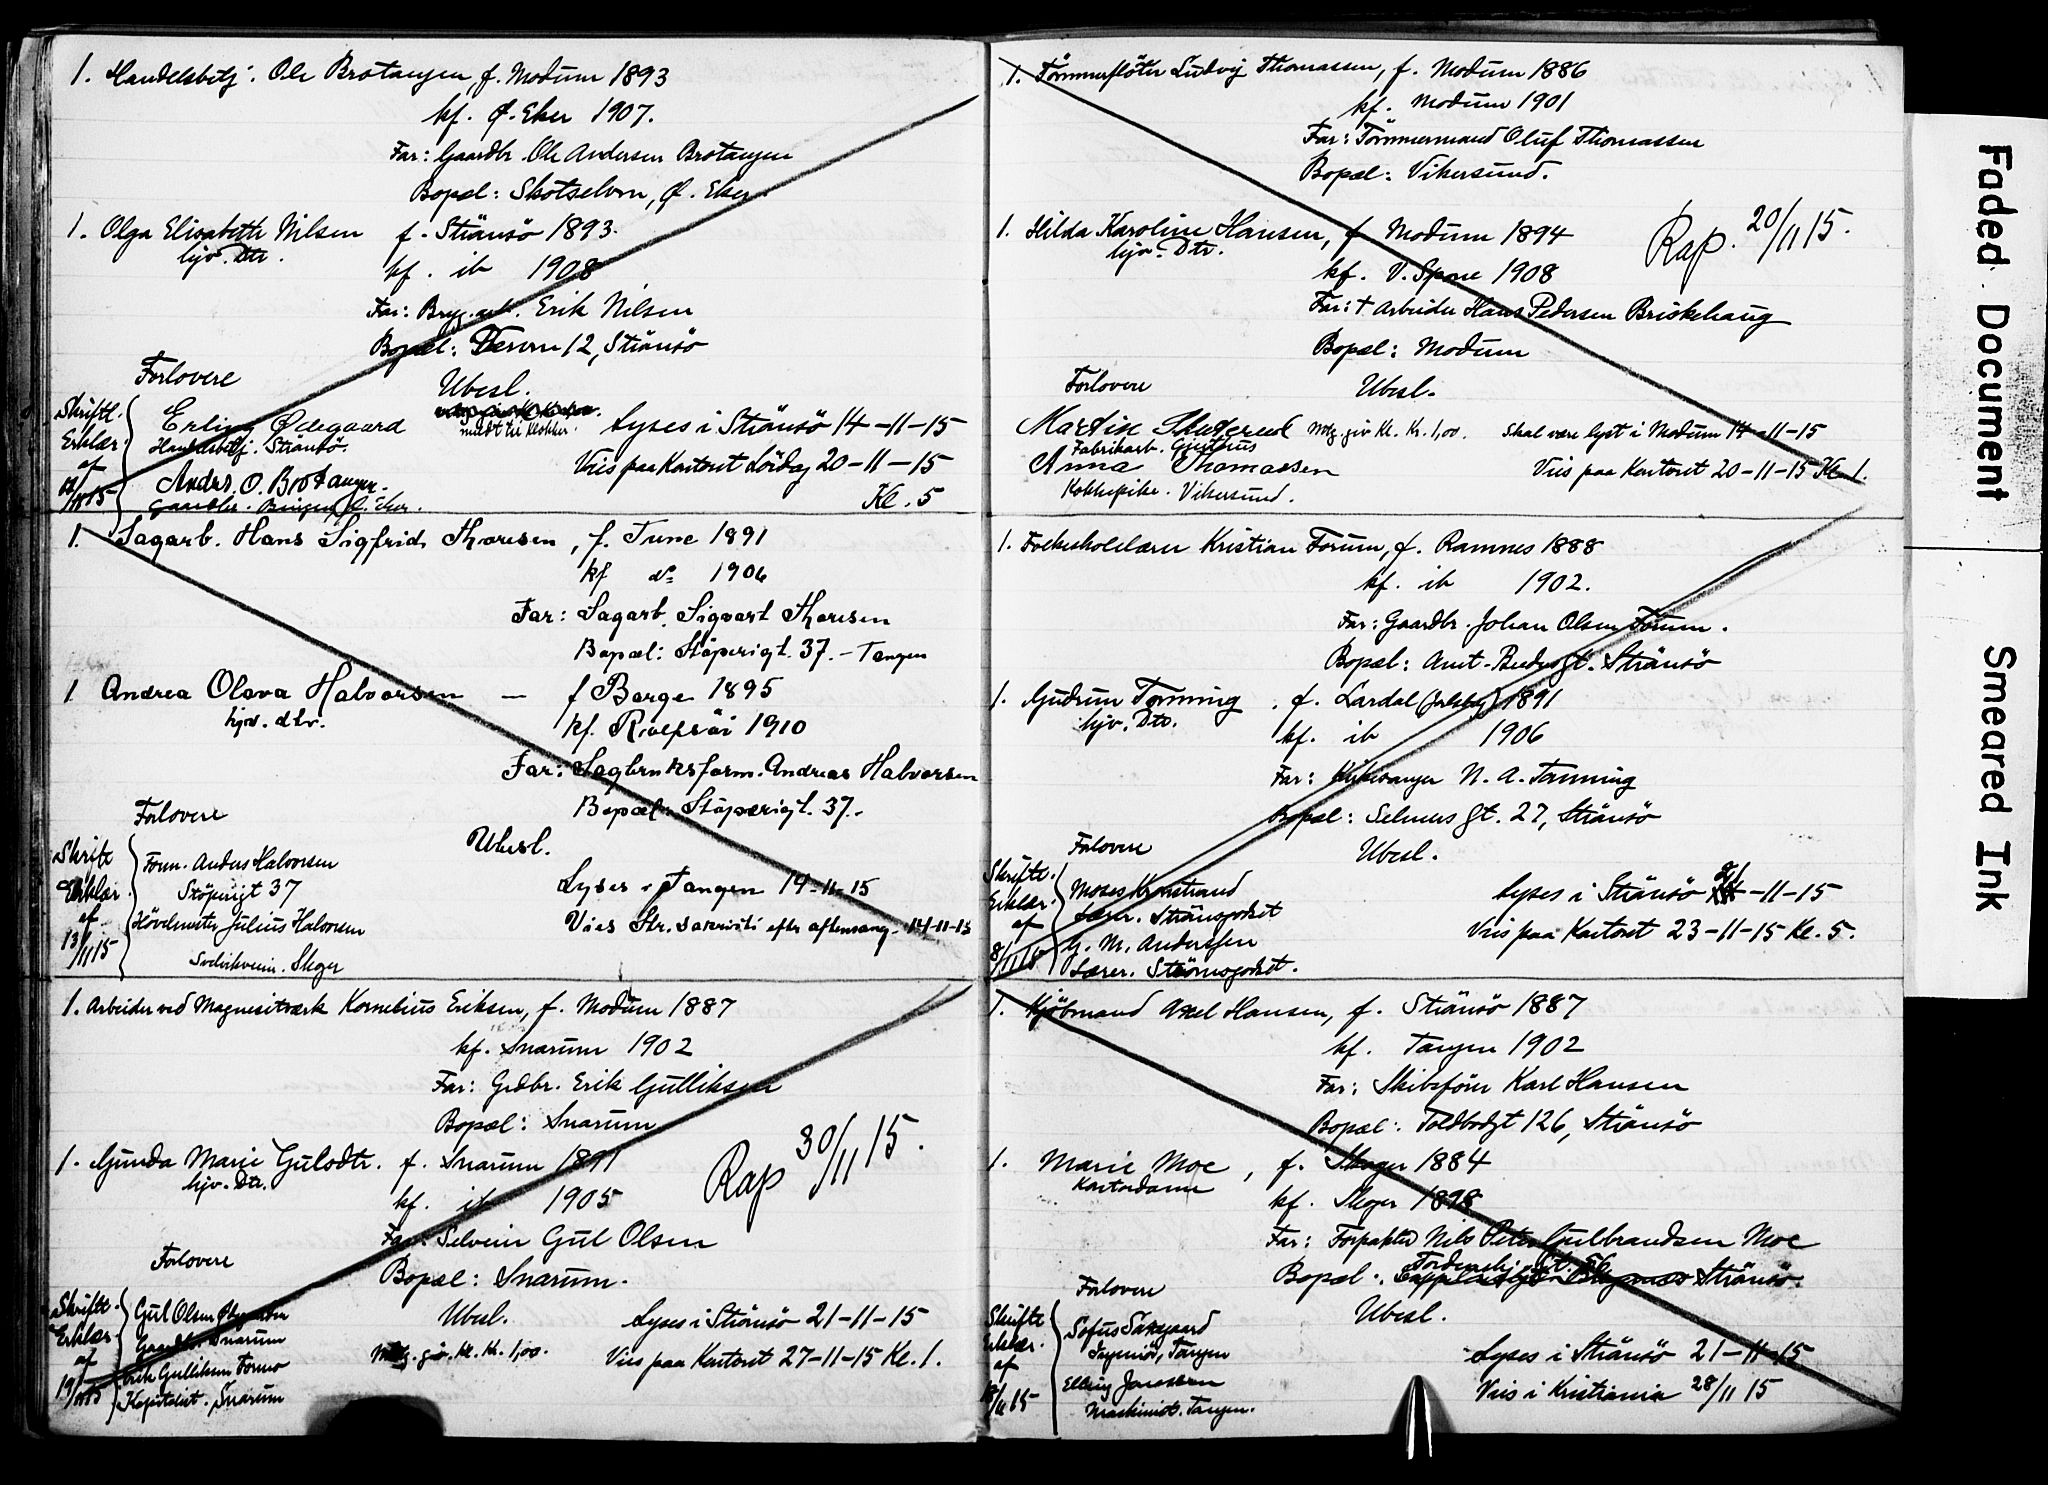 1. Handelsbetj. Ole Brotangen, f. Modum 1893
kf. Ø. Eker 1907.
Far: Gaardbr. Ole Andersen Brotangen
Bopæl: Skotselven, Ø. Eker
1. Olga Elisabeth Nilsen f. Strömsö 1893.
hjv. Dtr. kf. ib 1908
Far: Bryg. arb. Erik Nilsen
Bopæl: 12, Strömsö
Forlovere Ubesl.
Skriftl. Erklær. af 12/11 15
Erling Ødegaard
Handelsbetj. Strömsö.
Anders O. Brotangen
Gaardbr. Bingen, Ø. Eker.
meldt til Klokker.
Lyses i Strömsö 14-11-15
Vies paa Kontoret Lördag 20-11-15
Kl. 5
1. Sagarb. Hans Sigfrid Thoresen, f. Tune 1891
kf do 1906
Far: Sagarb. Sigvart Thoresen
Bopæl: Stöperigt. 37. - Tangen
1 Andrea Olava Halvorsen - f Borge 1895
hjv. dtr. kf. Rolfsöi 1910
Far: Sagbruksform. Andreas Halvorsen
Bopæl: Stöperigt. 37.
Forlovere
Ubesl.
Skriftl Erklær. af 13/11 15
Form. Anders Halvorsen
Stöperigt 37
Hövlmester Julius Halvorsen
Skoger
Lyses i Tangen 14-11-15
Vies Str. sakristi efter aftensang 14-11-15
1. Arbeider ved Magnesitværk Kornelius Eriksen, f. Modum 1887
kf. Snarum 1902
Far: Grdbr. Erik Gulliksen
Bopæl: Snarum
1. Gunda Marie Gulsdtr. f. Snarum 1891
hjv. Dtr. kf. ib 1905
Rap 30/11 15.
Far: Selveier Gul Olsen
Bopæl: Snarum.
Forlovere
Ubesl.
Skriftl. Erklær. af 19/11 15
Gul Olsen
Gaardbr. Snarum
Erik Gulliksen Formo
Kapitalist. Snarum
Lyses i Strömsö 21-11-15
Mtg. giv. Kl. Kr. 1,00. Vies paa Kontoret 27-11-15 Kl. 1.
1. Tömmerflöter Ludvig Thomassen, f. Modum 1886
kf. Modum 1901
Far: Tömmermand Oluf Thomassen
Bopæl: Vikersund.
1. Hilda Karoline Hansen, f Modum 1894
hjv. Dtr. kf. V. Spone 1908
Rap. 20/11 15.
Far: † Arbeider Hans Pedersen Briskehaug
Bopæl: Modum
Forlovere Ubesl.
Martin
Fabrikarb. Geithus
Mtg. giv Kl. Kr. 1,00. Skal være lyst i Modum 14-11-15
Anna Thomassen
Kokkepike. Vikersund.
Vies paa Kontoret 20-11-15 Kl. 1.
1. Folkeskolelærer Kristian Forum, f. Ramnes 1888
kf. ib 1902.
Far: Gaardbr. Johan Olsen Forum.
Bopæl: Amt. Strömsö
1. Gudrun Tanning, f. Lardal (Jarlsbg) 1891
hjv. Dtr. kf. ib 1906
Far: Kirkesanger N. A. Tanning
Bopæl: Selmers gt. 27, Strömsö
Forlovere Ubesl.
Skriftl. Erklær. af 8/11 15
Moses Kronstrand
Lærer. Strömsgodset
G. M. Anderssen
Lærer. Strömsgodset.
Lyses i Strömsö 21-11-15
Vies paa Kontoret 23-11-15 Kl. 5.
1. Kjöbmand Axel Hansen, f. Strömsö 1887
kf. Tangen 1902
Far: Skibsförer Karl Hansen
Bopæl: Toldbodgt 126, Strömsö
1. Marie Moe, f. Skoger 1884
Kontordame kf. Skoger 1898
Far: Forpakter Nils Peter Gulbrandsen Moe
Tordenskj. gt. 56
Bopæl. Strömsö.
Forlovere
Ubesl.
Skriftl. Erklær. af 18/11 15
Sofus Saxegaard
Ingeniör, Tangen
Elling Jonassen
Maskinist. Tangen.
Lyses i Strömsö 21-11-15
Vies i Kristiania 28/11 15
Faded Document
Smeared Ink